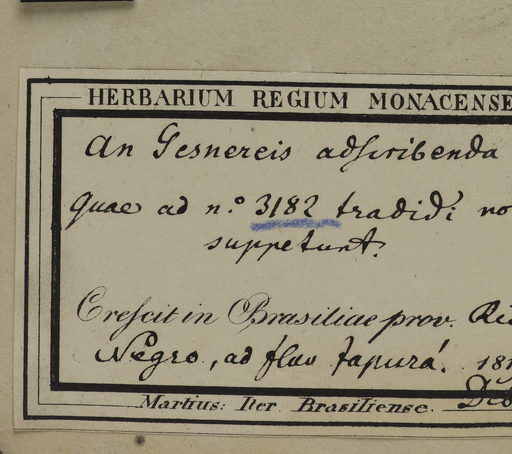 HERBARIUM REGIUM MONACENSE
An Gesnereis adſcribenda
quae ad n.º 3182 tradidi no
suppetunt.
Creſcit in Brasiliae prov. Rio
Negro, ad fluv Japurá. 181
Martius: Iter Brasiliense. Dec